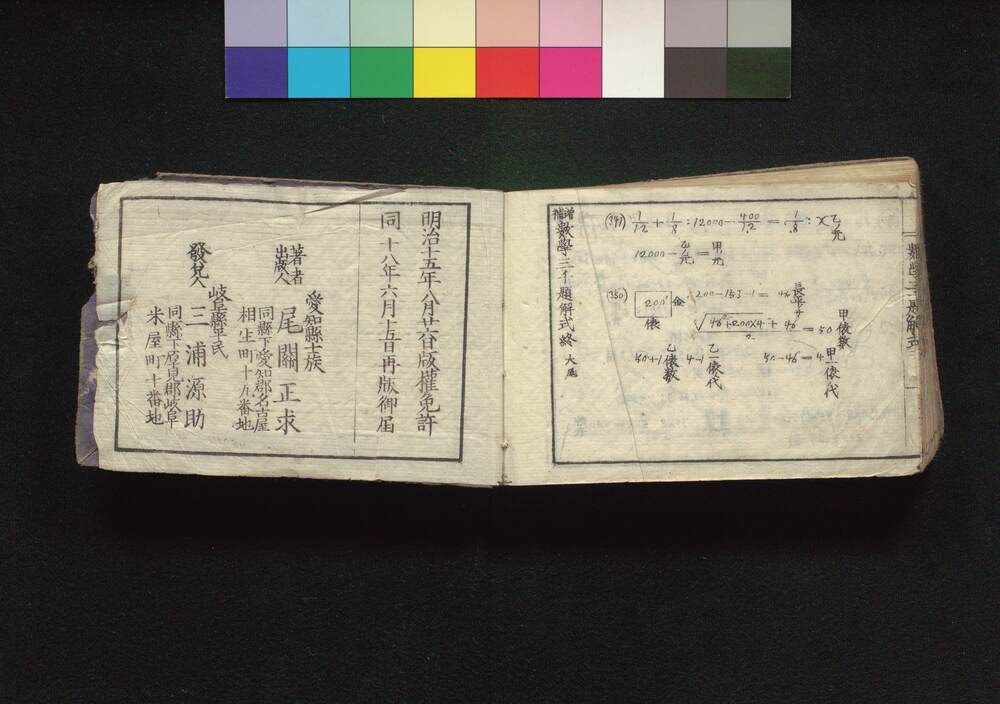 (349) 1/12 + 1/8 : 12000 - 400/1.2 = 1/.8 : X乙ノ元
12000 - 乙ノ元 = 甲ノ元
(350) 200 俵 金 200-153-1 = 46
√46²+200×4 + 46 / 2 = 50 甲俵数
50-46 = 4 甲一俵代
50+1 乙俵数 4-1 乙一俵代
増補 數學三千題解式終 大尾
明治十五年八月廿六日版權免許
同十八年六月十五日再版御届
愛知縣士族
著者 出版人 尾關正求
同縣下愛知郡名古屋
相生町十九番地
岐阜縣平民
發兌人 三浦源助
同縣下厚見郡岐阜
米屋町十番地